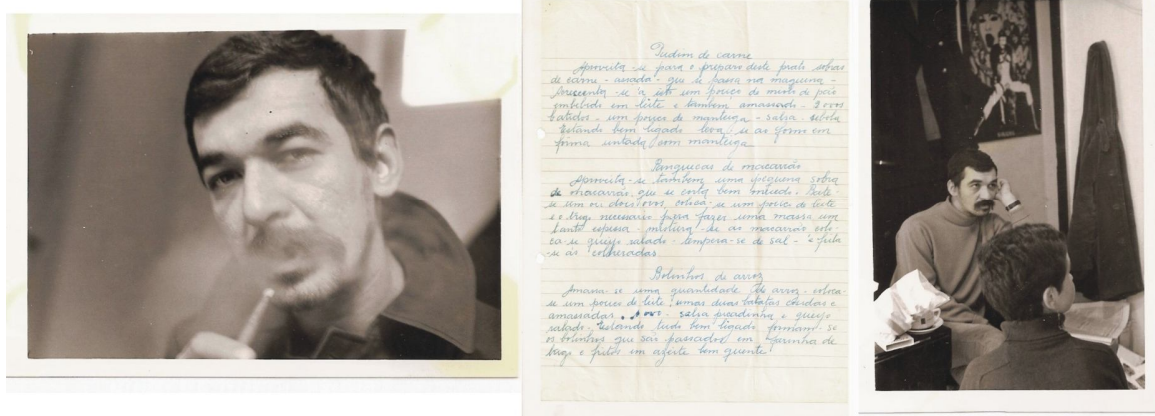 Pudim de carne
Aproveita-se para o preparo deste prato sobras
de carne - assada - que se passa na maquina -
Crescenta-se a isto um pouco de miolo de pão
embebido em leite e tambem amassado - 2 ovos
batidos - um pouco de manteiga - salsa - cebola
Estando bem ligado leva-se ao forno em
forma untada com manteiga
Linguicas de macarrão
Aproveita-se tambem uma pequena sobra
de macarrão que se corta bem miudo.
se um ou dois ovos, coloca-se um pouco de leite
e o trigo necessario para fazer uma massa um
tanto espessa - mistura-se ao macarrão colo-
ca-se queijo ralado - tempera-se de sal - e frita
-se as colheradas
Bolinhos de arroz
Amassa-se uma quantidade de arroz - coloca-
se um pouco de leite, umas duas batatas cosidas e
amassadas. 1 ovo - salsa picadinha e queijo
ralado. Estando tudo bem ligado, formam-se
os bolinhos que são passados em farinha de
trigo e fritos em azeite bem quente!